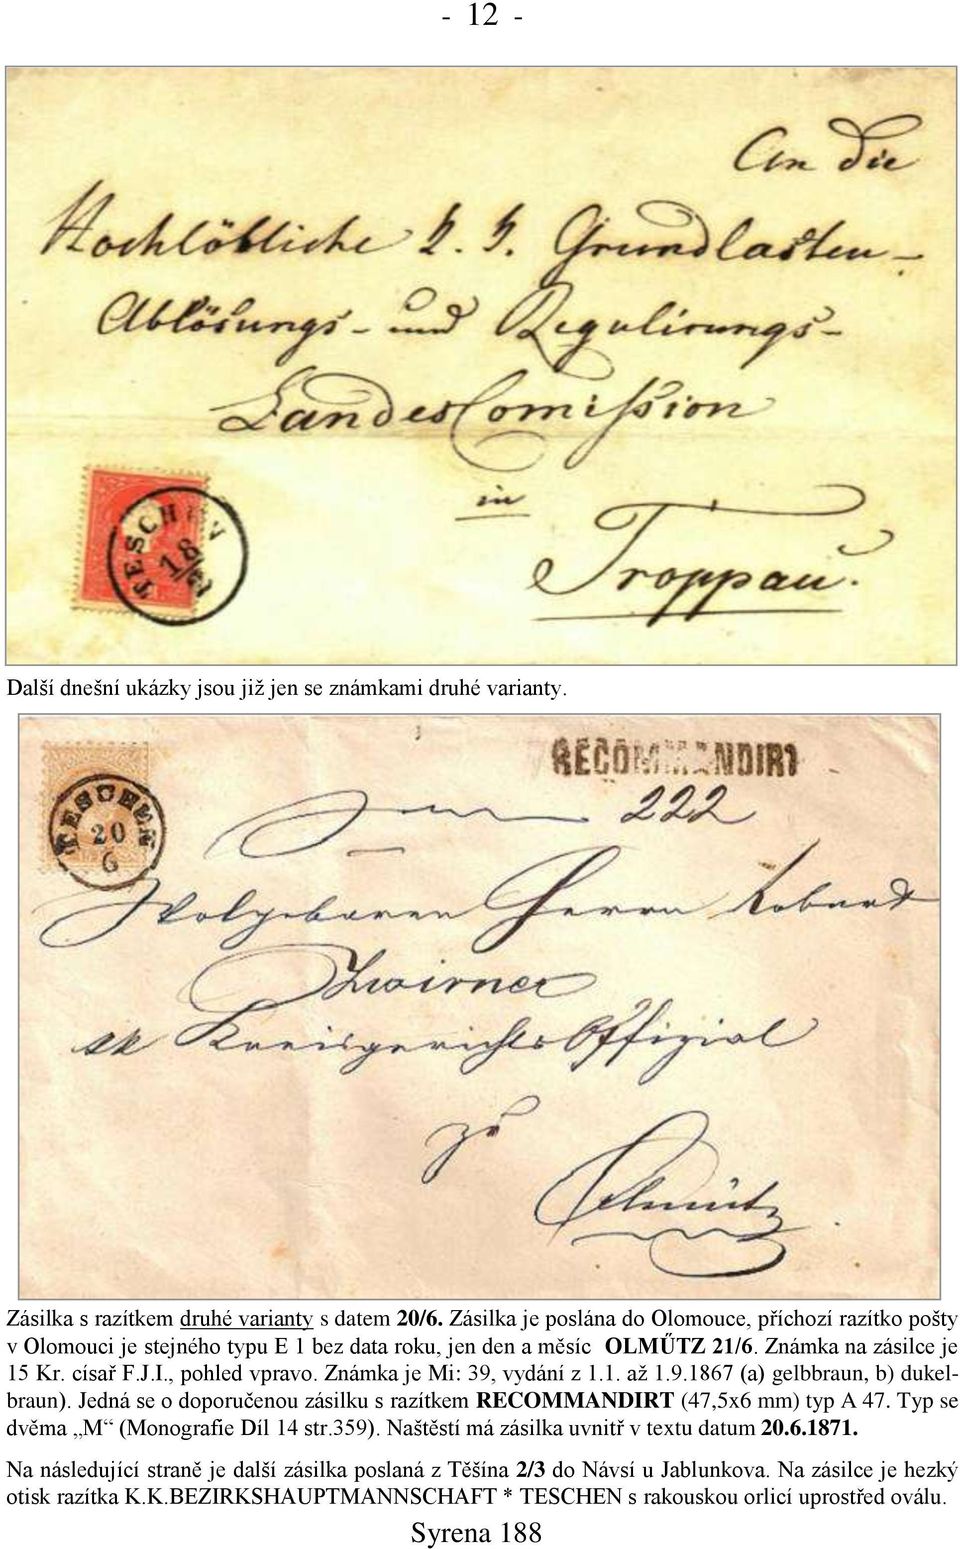 - 12 -
An die
Hochlöbliche k. k. Grundlasten-
Ablösungs- und Regulirungs-
LandesComission
in
Troppau.
TESCHEN
18/
Další dnešní ukázky jsou již jen se známkami druhé varianty.
RECOMMANDIRT
222
TESCHEN
20
6
Wolgebaren Herrn Robert
Zwirner
kk KreisgerichtsOffizial
zu
Olmütz
Zásilka s razítkem druhé varianty s datem 20/6. Zásilka je poslána do Olomouce, příchozí razítko pošty
v Olomouci je stejného typu E 1 bez data roku, jen den a měsíc OLMŰTZ 21/6. Známka na zásilce je
15 Kr. císař F.J.I., pohled vpravo. Známka je Mi: 39, vydání z 1.1. až 1.9.1867 (a) gelbbraun, b) dukel-
braun). Jedná se o doporučenou zásilku s razítkem RECOMMANDIRT (47,5x6 mm) typ A 47. Typ se
dvěma „M“ (Monografie Díl 14 str.359). Naštěstí má zásilka uvnitř v textu datum 20.6.1871.
Na následující straně je další zásilka poslaná z Těšína 2/3 do Návsí u Jablunkova. Na zásilce je hezký
otisk razítka K.K.BEZIRKSHAUPTMANNSCHAFT * TESCHEN s rakouskou orlicí uprostřed oválu.
Syrena 188